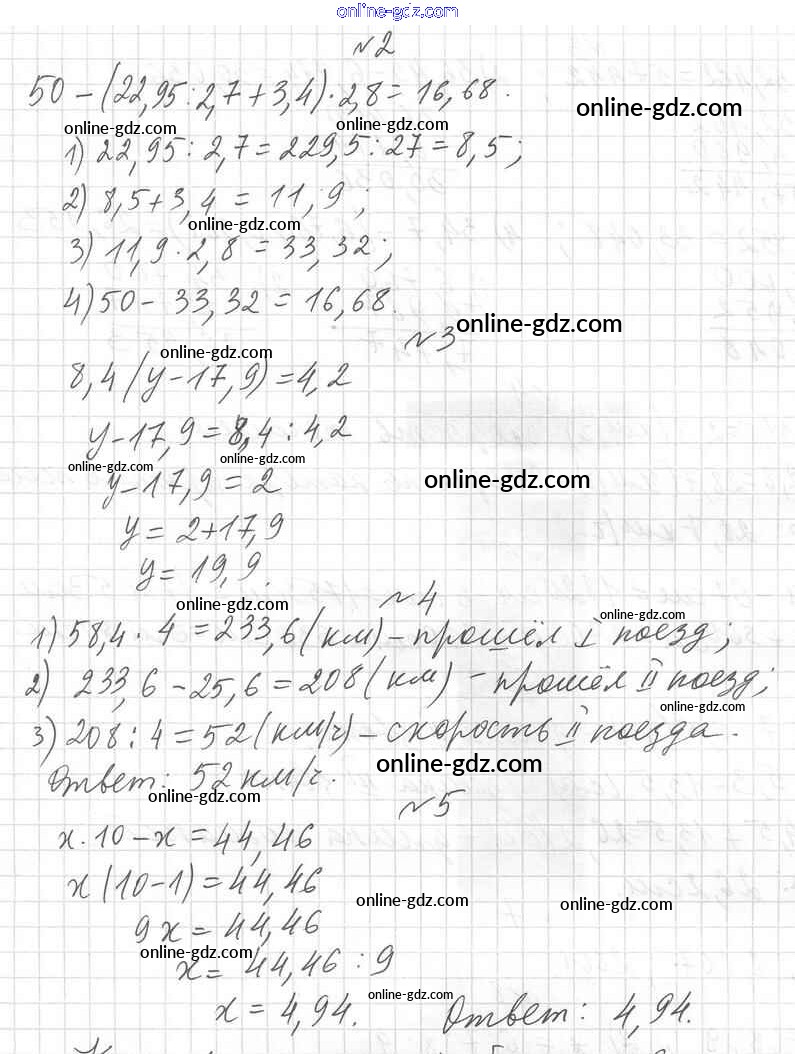 online-gdz.com
№2
50 − (22,95 : 2,7 + 3,4) · 2,8 = 16,68.
online-gdz.com
online-gdz.com
online-gdz.com
1) 22,95 : 2,7 = 229,5 : 27 = 8,5;
2) 8,5 + 3,4 = 11,9;
online-gdz.com
3) 11,9 · 2,8 = 33,32;
4) 50 − 33,32 = 16,68.
online-gdz.com
№3
online-gdz.com
8,4 (y − 17,9) = 4,2
y − 17,9 = 8,4 : 4,2
online-gdz.com
online-gdz.com
y − 17,9 = 2
online-gdz.com
y = 2 + 17,9
y = 19,9.
online-gdz.com
№4
online-gdz.com
1) 58,4 · 4 = 233,6 (км) − прошёл I поезд;
2) 233,6 − 25,6 = 208 (км) − прошёл II поезд;
online-gdz.com
3) 208 : 4 = 52 (км/ч) − скорость II поезда.
online-gdz.com
Ответ: 52 км/ч.
online-gdz.com
№5
x · 10 − x = 44,46
x (10 − 1) = 44,46
online-gdz.com
online-gdz.com
9x = 44,46
online-gdz.com
x = 44,46 : 9
online-gdz.com
x = 4,94. Ответ: 4,94.